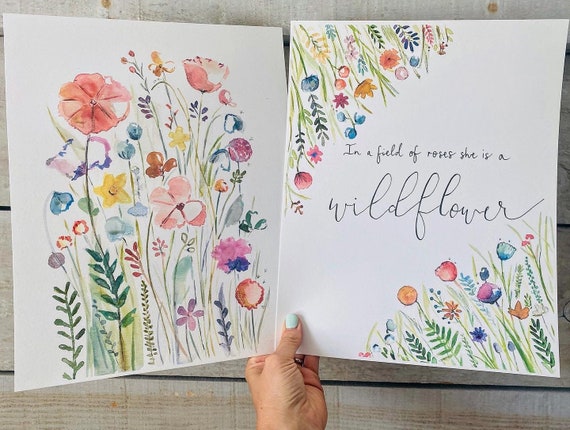 In a field of roses she is a
wildflower